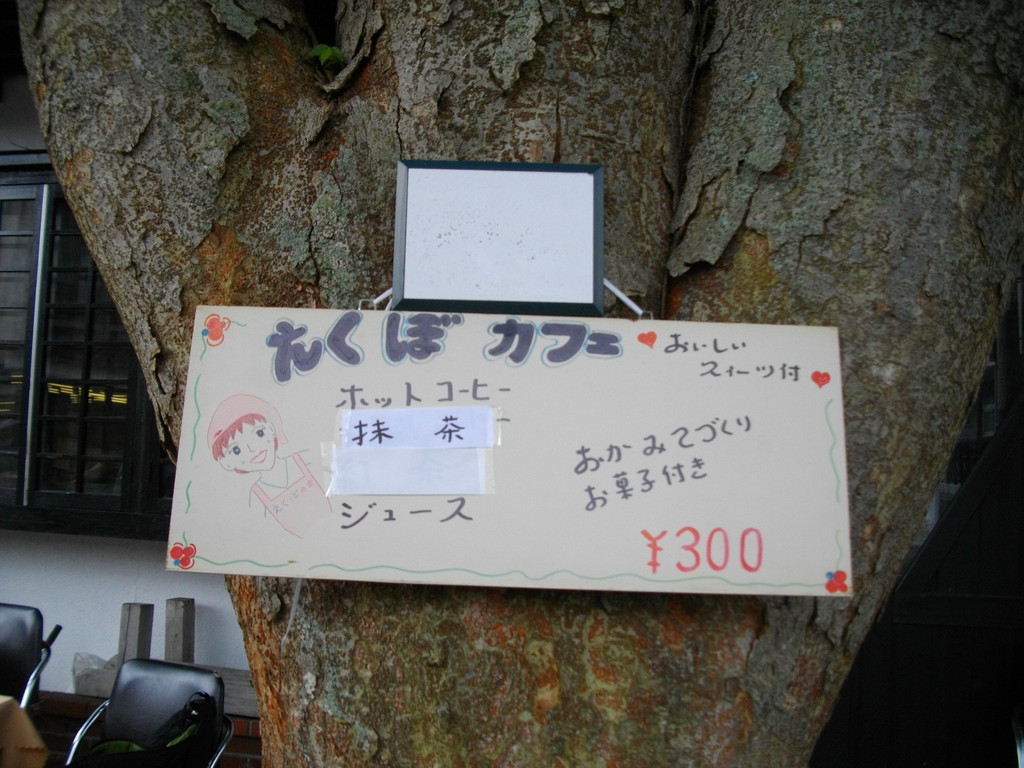 えくぼ カフェ
おいしい
スィーツ付
ホットコーヒー
抹 茶
ジュース
おかみてづくり
お菓子付き
¥300